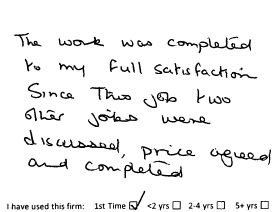 The work was completed
to my full satisfaction
Since this job two
other jobs were
discussed, price agreed
and completed
I have used this firm: 1st Time ☑ <2 yrs ☐ 2-4 yrs ☐ 5+ yrs ☐